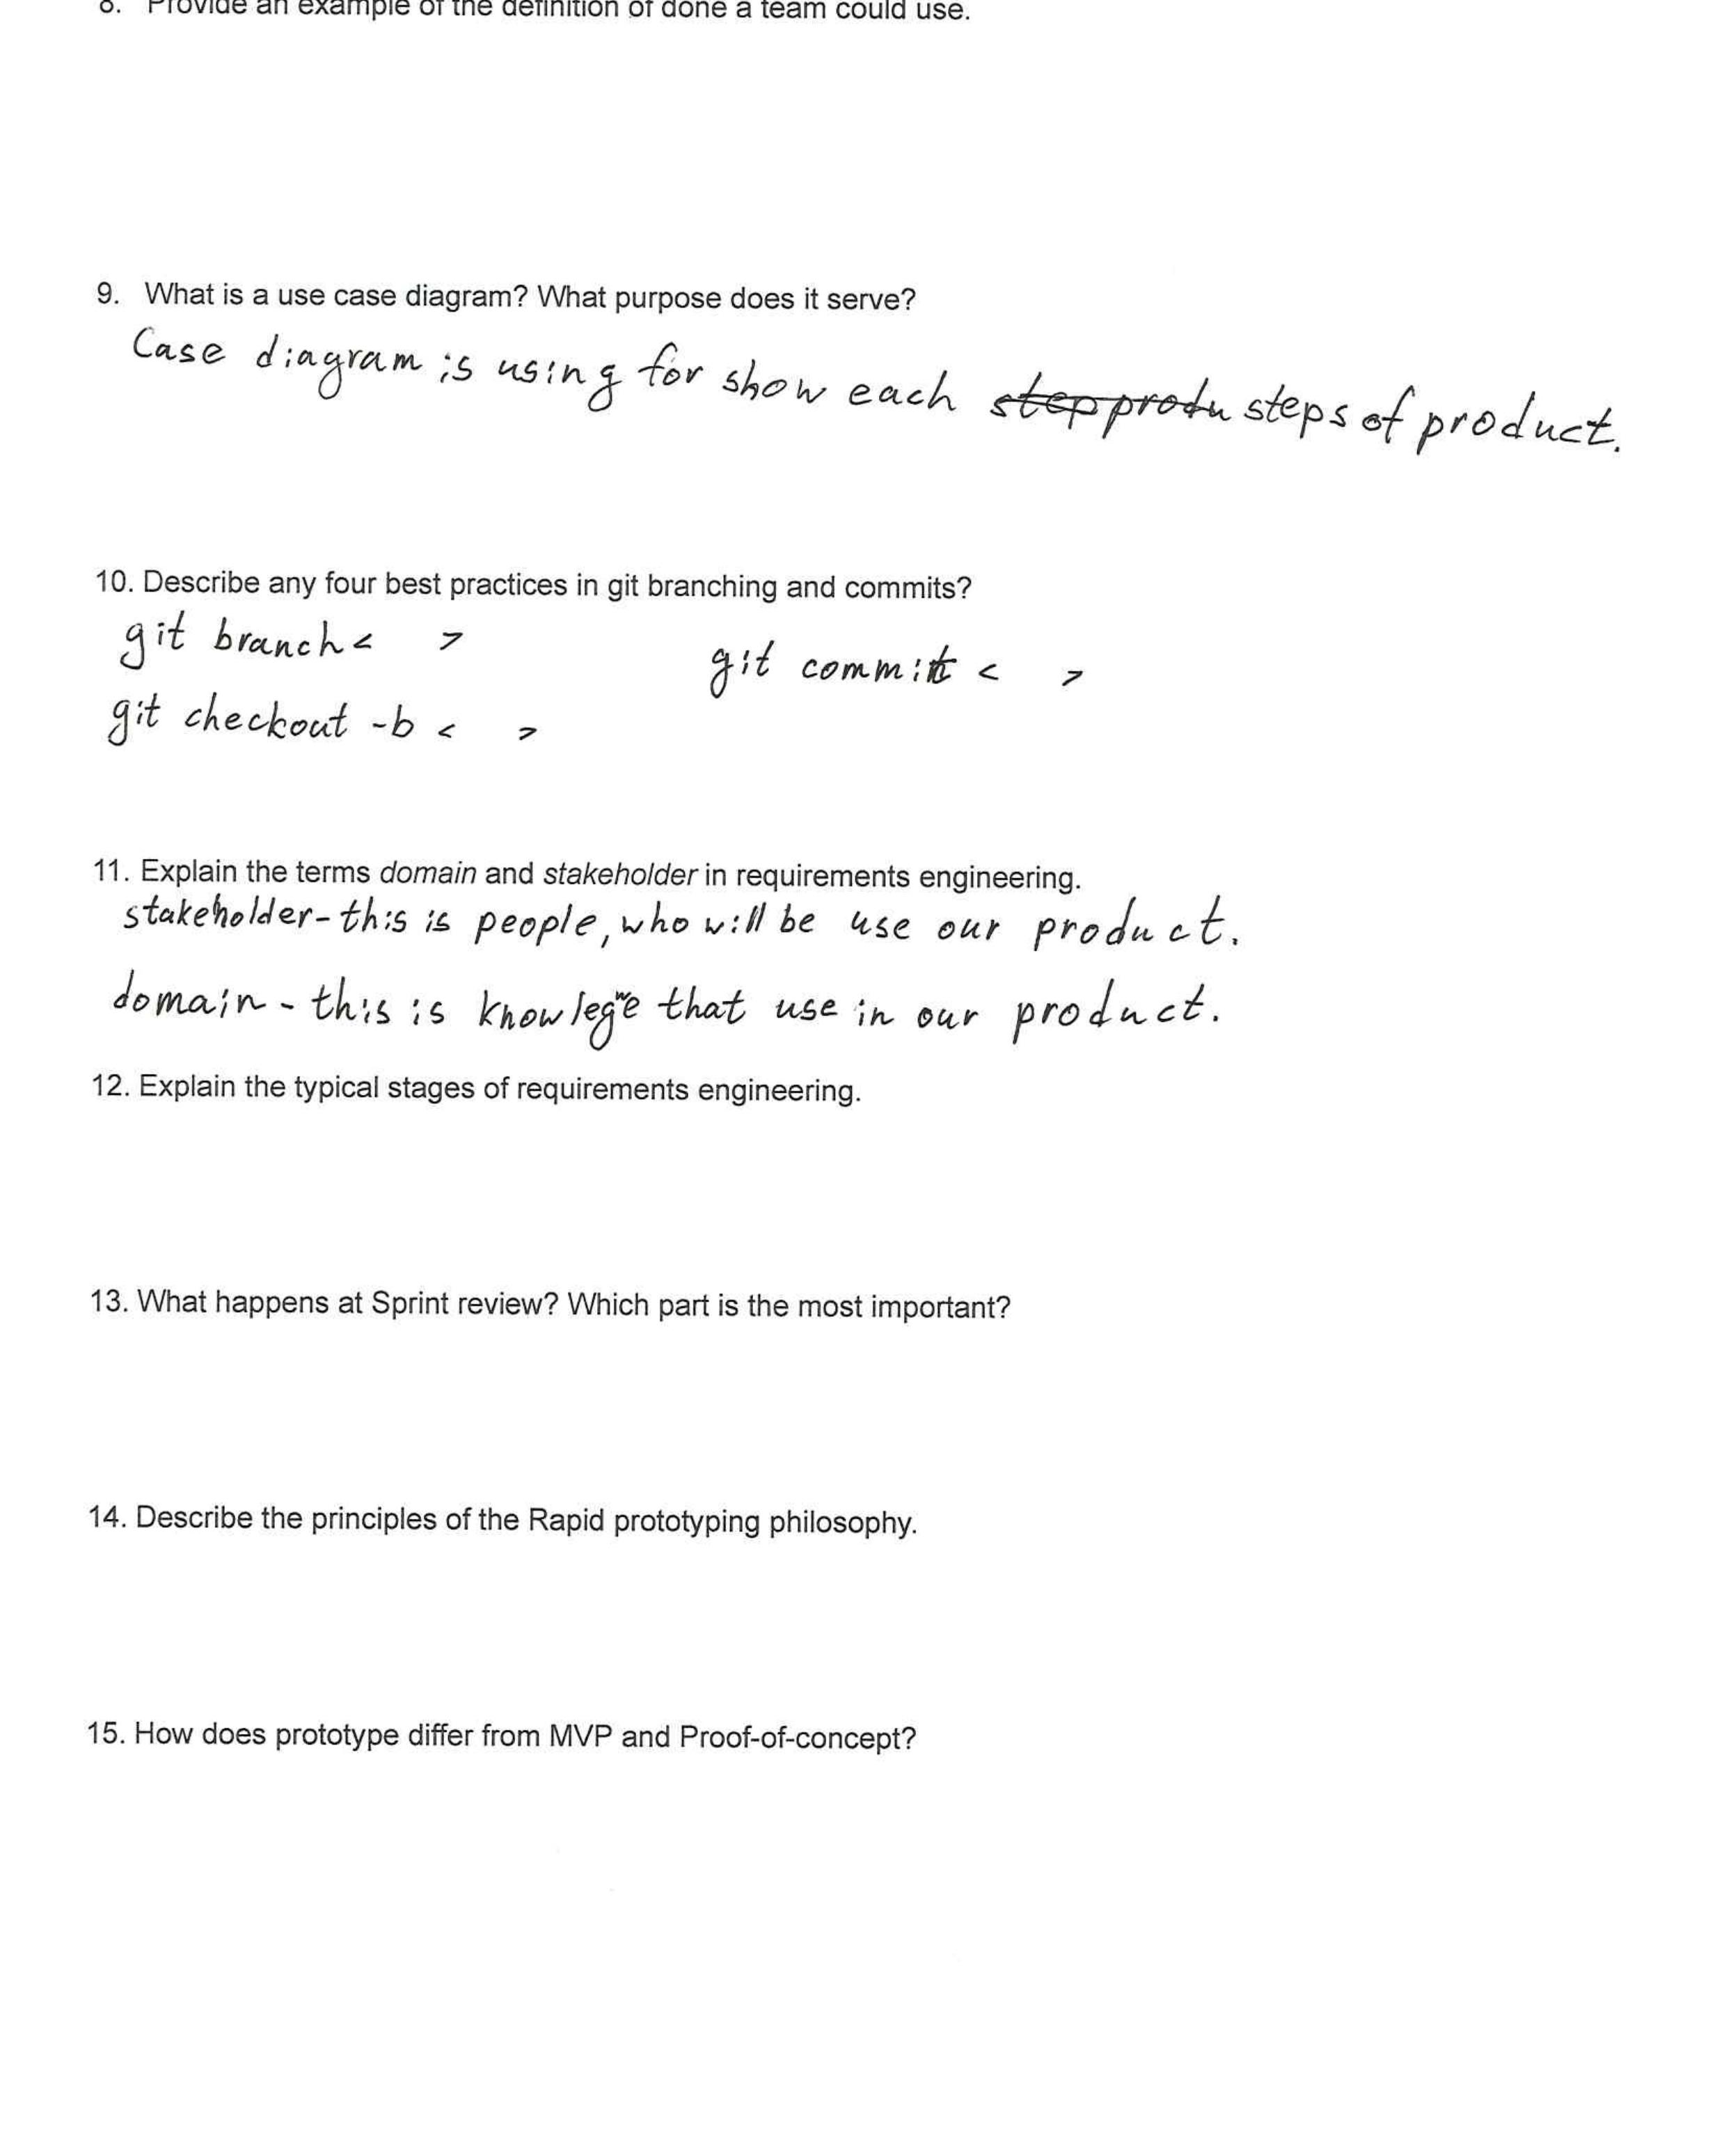 8. Provide an example of the definition of done a team could use.
9. What is a use case diagram? What purpose does it serve?
Case diagram is using for show each step produ steps of product.
10. Describe any four best practices in git branching and commits?
git branch < >
git commit < >
git checkout -b < >
11. Explain the terms domain and stakeholder in requirements engineering.
stakeholder - this is people, who will be use our product.
domain - this is knowlege that use in our product.
12. Explain the typical stages of requirements engineering.
13. What happens at Sprint review? Which part is the most important?
14. Describe the principles of the Rapid prototyping philosophy.
15. How does prototype differ from MVP and Proof-of-concept?